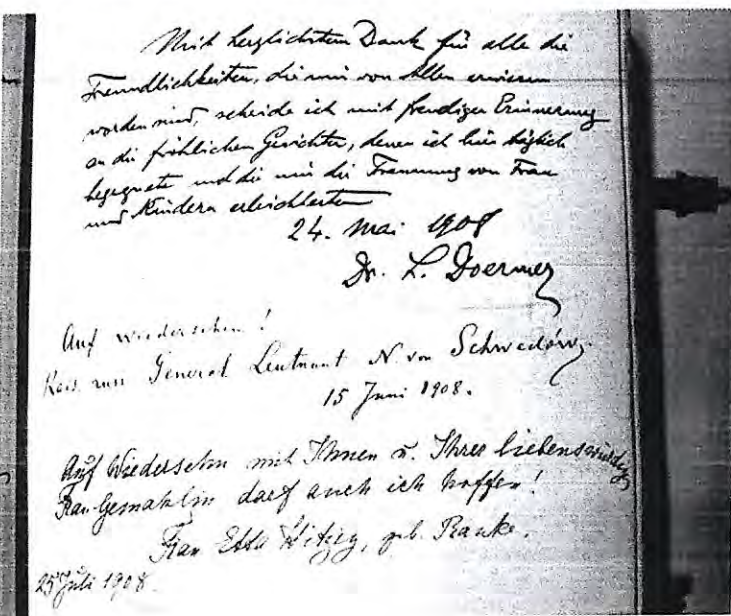 Mit herzlichstem Dank für alle die
Freundlichkeiten, die mir von Allen erwiesen
worden sind, scheide ich mit freudiger Erinnerung
an die fröhlichen Gesichter, denen ich hier täglich
begegnete und die mir die Trennung von Frau
und Kindern erleichterten
24. Mai 1908
Dr. L. Doermer
Auf wiedersehen!
Kais. russ General Leutnant N. von Schwedow
15 Juni 1908.
Auf Wiedersehn mit Ihnen u. Ihrer liebenswürdig
Frau Gemahlin darf auch ich hoffen!
Frau Etta Hitzig, geb. Ranke.
25 Juli 1908.